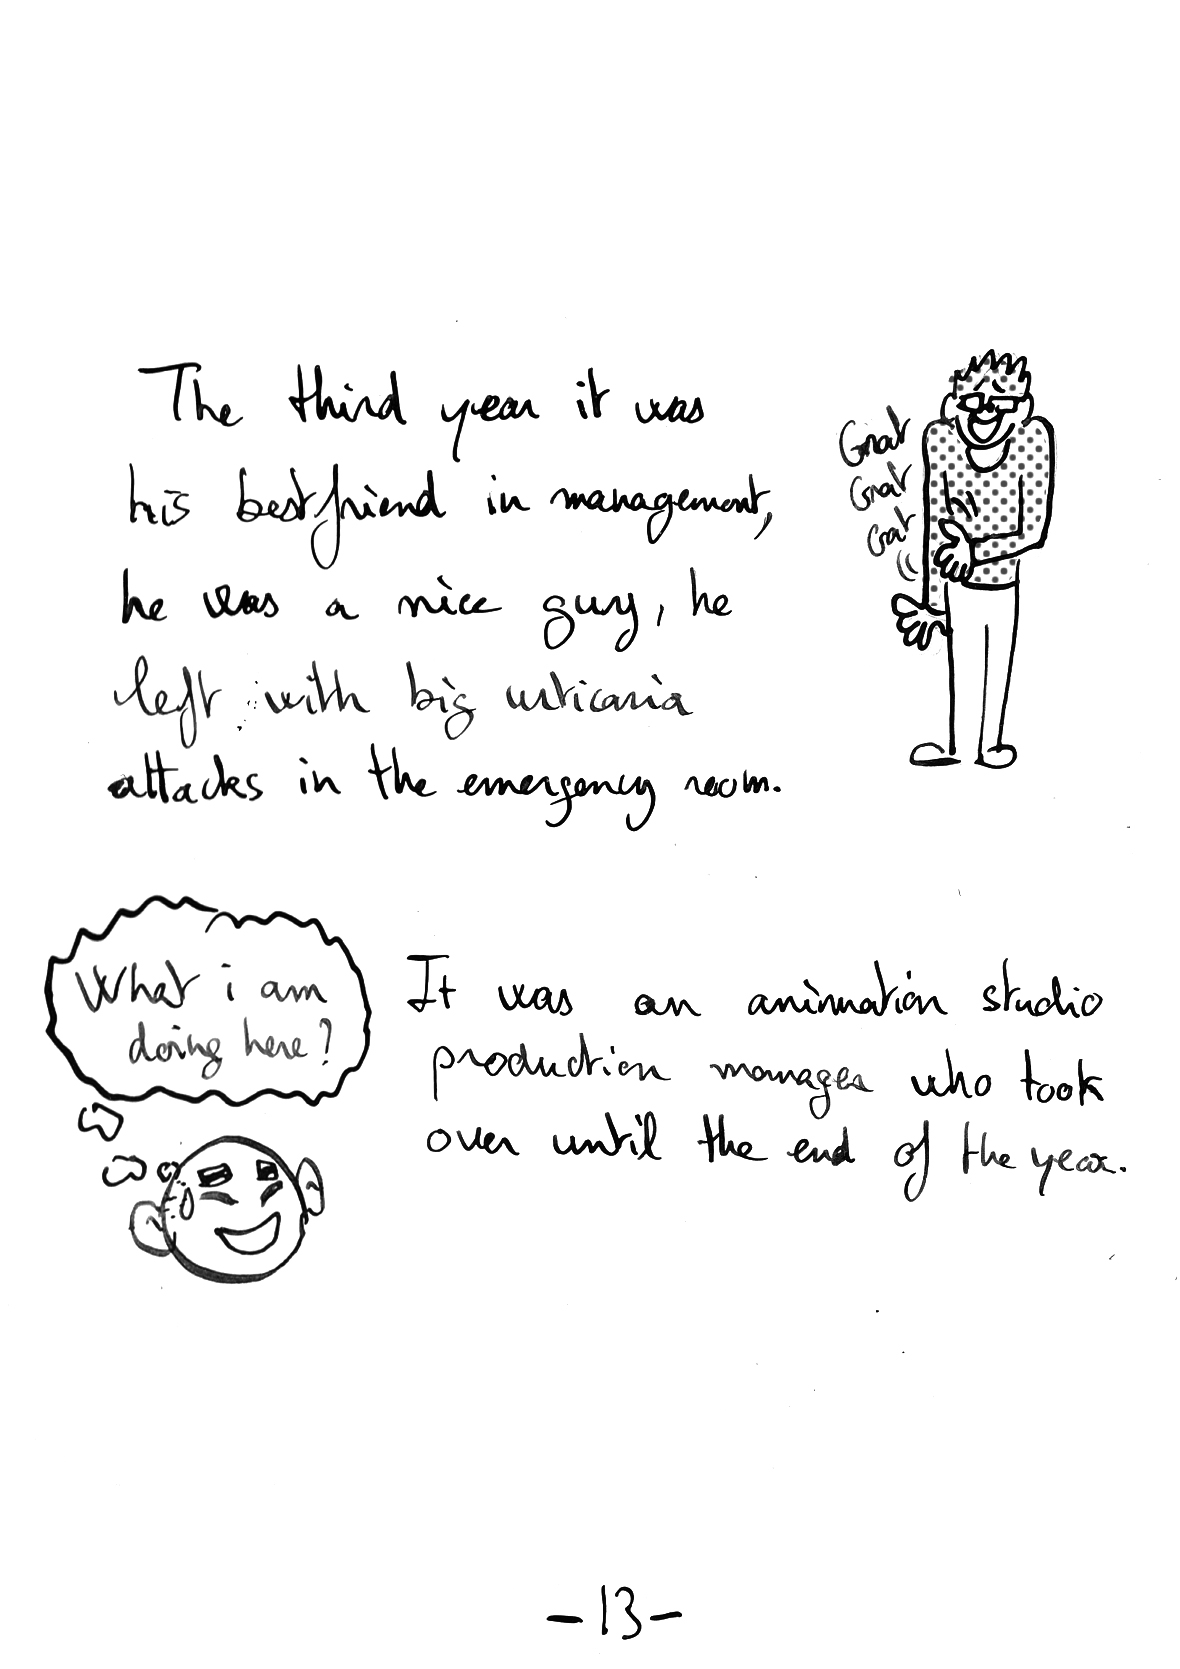 The third year it was
his bestfriend in management,
he was a nice guy, he
left with big urticaria
attacks in the emergency room.
Grat
Grat
Grat
What i am
doing here?
It was an animation studio
production manager who took
over until the end of the year.
-13-